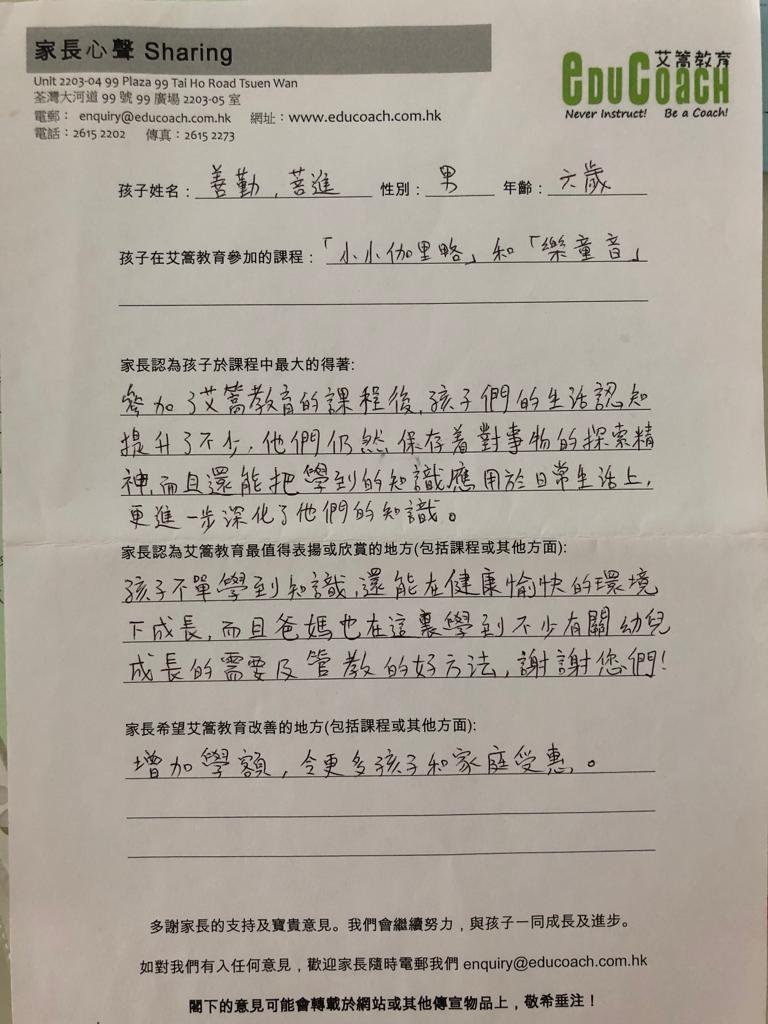 家長心聲 Sharing
Unit 2203-04 99 Plaza 99 Tai Ho Road Tsuen Wan
荃灣大河道 99 號 99 廣場 2203-05 室
電郵： enquiry@educoach.com.hk 網址：www.educoach.com.hk
電話：2615 2202 傳真：2615 2273
艾蒿教育
EDUCOACH
Never Instruct! Be a Coach!
孩子姓名：善勤，善進 性別：男 年齡：六歲
孩子在艾蒿教育參加的課程：「小小伽里略」和「樂童音」
家長認為孩子於課程中最大的得著:
參加了艾蒿教育的課程後，孩子們的生活認知
提升了不少，他們仍然保存着對事物的探索精
神，而且還能把學到的知識應用於日常生活上，
更進一步深化了他們的知識。
家長認為艾蒿教育最值得表揚或欣賞的地方(包括課程或其他方面):
孩子不單學到知識，還能在健康愉快的環境
下成長，而且爸媽也在這裏學到不少有關幼兒
成長的需要及管教的好方法，謝謝您們！
家長希望艾蒿教育改善的地方(包括課程或其他方面):
增加學額，令更多孩子和家庭受惠。
多謝家長的支持及寶貴意見。我們會繼續努力，與孩子一同成長及進步。
如對我們有入任何意見，歡迎家長隨時電郵我們 enquiry@educoach.com.hk
閣下的意見可能會轉載於網站或其他傳宣物品上，敬希垂注！